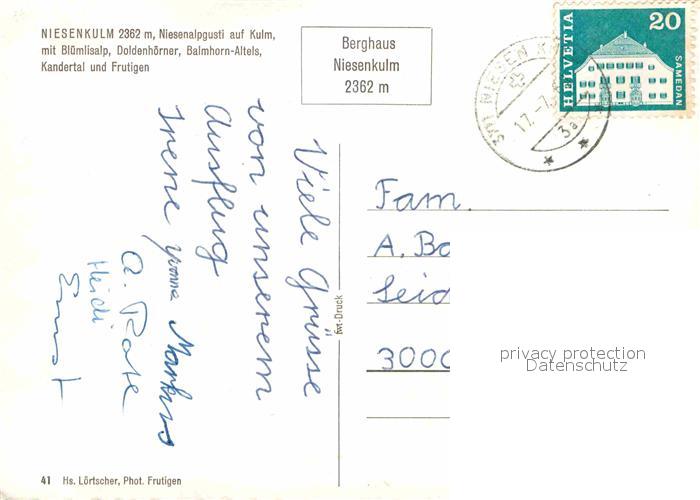 NIESENKULM 2362 m, Niesenalpgusti auf Kulm,
mit Blümlisalp, Doldenhörner, Balmhorn-Altels,
Kandertal und Frutigen
Berghaus
Niesenkulm
2362 m
3711 NIESEN
17.-7.
3a
HELVETIA
20
SAMEDAN
Viele Grüsse
von unserem
Ausflug
Irene Yvonne Markus
A. Rote
Heidi
Ernst
Druck
Fam.
A. Bo
Seid
3000
privacy protection
Datenschutz
41 Hs. Lörtscher, Phot. Frutigen